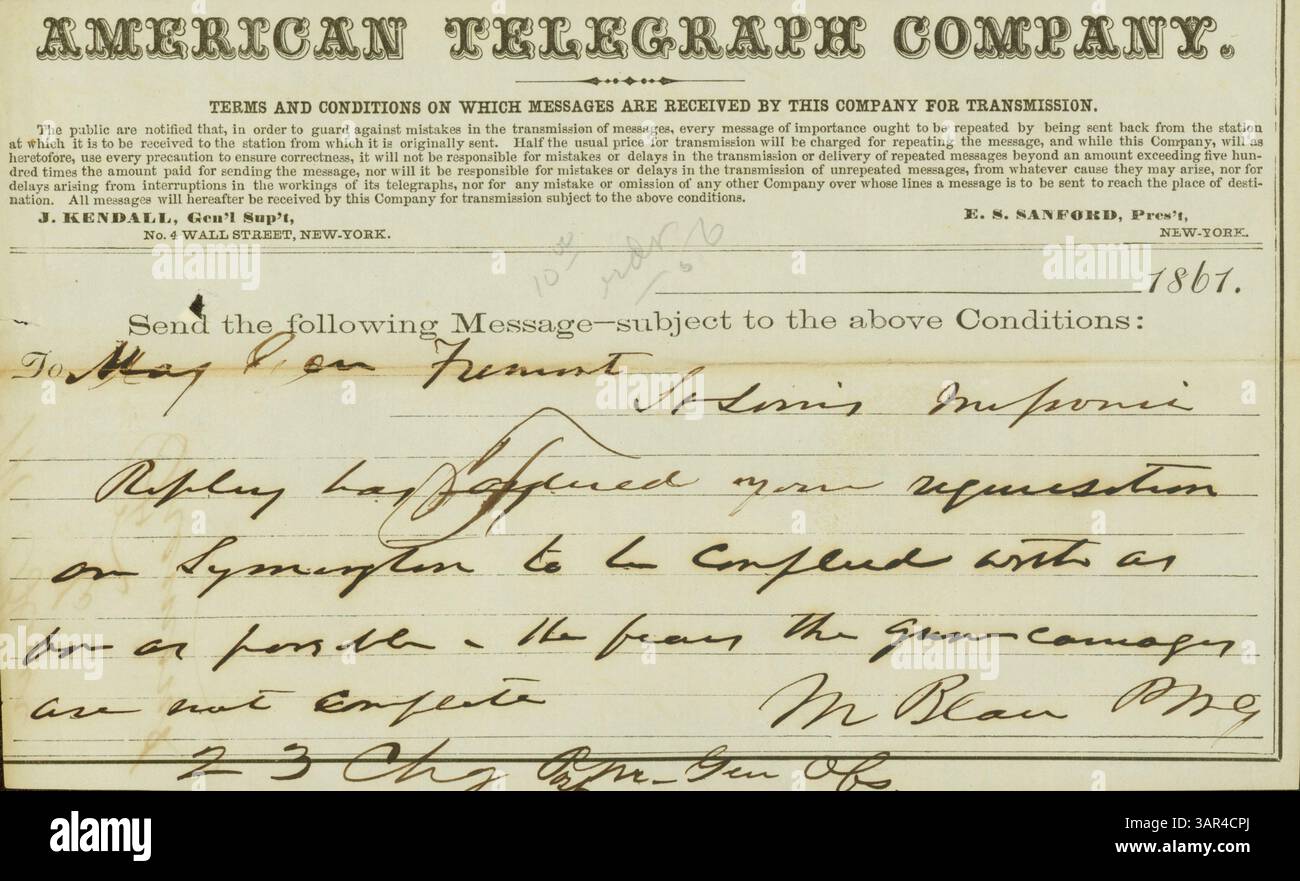 AMERICAN TELEGRAPH COMPANY.
TERMS AND CONDITIONS ON WHICH MESSAGES ARE RECEIVED BY THIS COMPANY FOR TRANSMISSION.
The public are notified that, in order to guard against mistakes in the transmission of messages, every message of importance ought to be repeated by being sent back from the station
at which it is to be received to the station from which it is originally sent. Half the usual price for transmission will be charged for repeating the message, and while this Company, will as
heretofore, use every precaution to ensure correctness, it will not be responsible for mistakes or delays in the transmission or delivery of repeated messages beyond an amount exceeding five hun-
dred times the amount paid for sending the message, nor will it be responsible for mistakes or delays in the transmission of unrepeated messages, from whatever cause they may arise, nor for
delays arising from interruptions in the workings of its telegraphs, nor for any mistake or omission of any other Company over whose lines a message is to be sent to reach the place of desti-
nation. All messages will hereafter be received by this Company for transmission subject to the above conditions.
J. KENDALL, Gen'l Sup't, E. S. SANFORD, Pres't,
No. 4 WALL STREET, NEW-YORK. NEW-YORK.
1861.
Send the following Message—subject to the above Conditions:
To Maj Gen Fremont
St Louis Missouri
Ripley has ordered your requisition
on Symington to be complied with as
far as possible - He fears the gun carriages
are not complete M Blair PMG
23 Chg Gen Ofs
alamy
Image ID: 3AR4CPJ
www.alamy.com